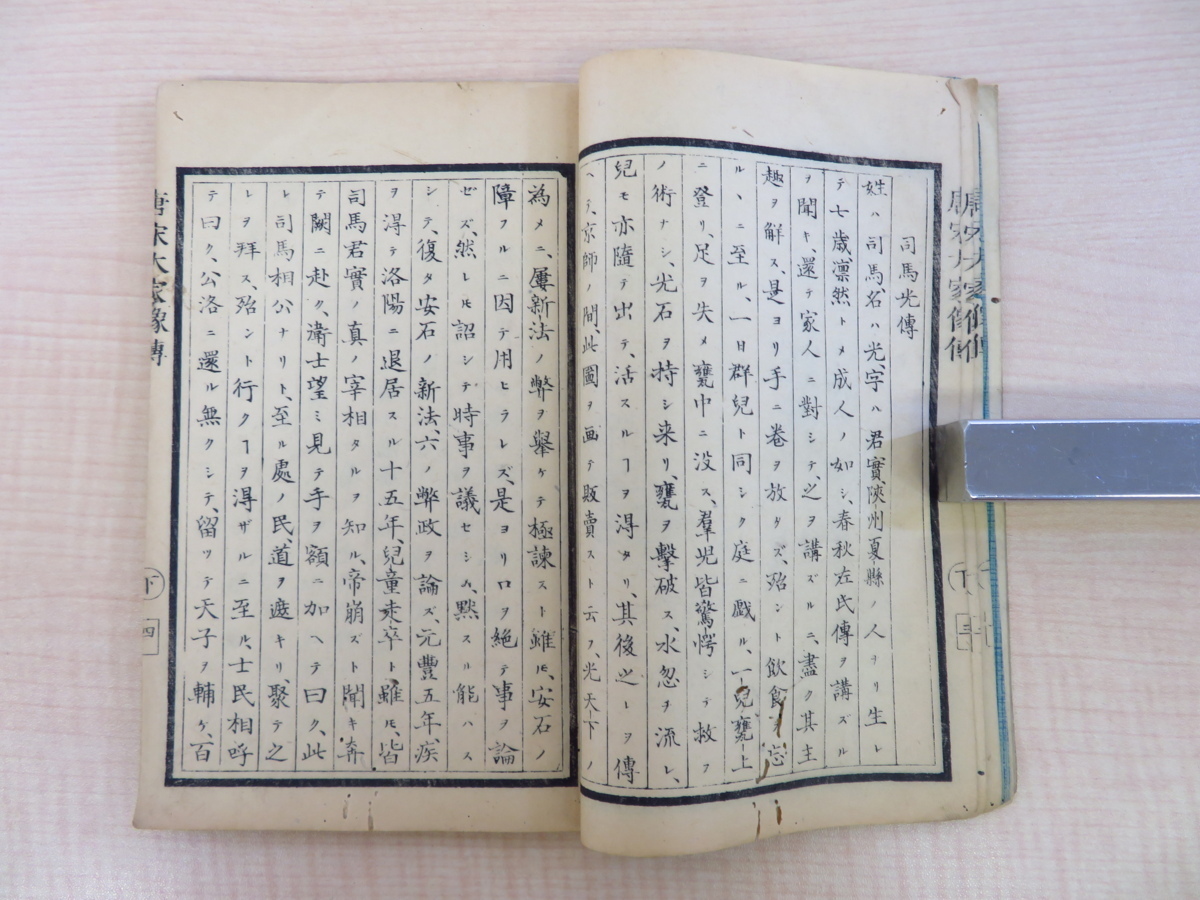 司馬光傳
姓ハ司馬、名ハ光、字ハ君實、陝州夏縣ノ人ナリ生レ
テ七歳、凛然トメ成人ノ如シ、春秋左氏傳ヲ講ズル
ヲ聞キ、還テ家人ニ對シテ、之ヲ講ズルニ、盡ク其主
趣ヲ解ス、是ヨリ手ニ卷ヲ放タズ、殆ント飲食ヲ忘
ルヽニ至ル、一日群兒ト同シク庭ニ戲ル、一兒甕上
ニ登リ、足ヲ失メ甕中ニ没ス、羣児皆驚愕シテ救フ
ノ術ナシ、光石ヲ持シ来リ、甕ヲ擊破ス、水忽チ流レ、
兒モ亦隨テ出テ、活スルヿヲ淂タリ、其後之レヲ傳
ヘテ、京師ノ間、此圖ヲ画テ販賣スト云フ、光天下ノ
為メニ、屢新法ノ弊ヲ舉ケテ極諫スト雖𪜈、安石ノ
障フルニ因テ用ヒラレズ、是ヨリ口ヲ絶テ事ヲ論
ゼズ、然レ𪜈詔シテ時事ヲ議セシム、黙スル能ハス
シテ、復タ安石ノ新法、六ノ弊政ヲ論ズ、元豐五年、疾
ヲ得テ洛陽ニ退居スル十五年、兒童走卒ト雖𪜈、皆
司馬君實ノ真ノ宰相タルヲ知ル、帝崩ズト聞キ奔
テ闕ニ赴ク、衛士望ミ見テ手ヲ額ニ加ヘテ曰ク、此
レ司馬相公ナリト、至ル處ノ民、道ヲ遮キリ、聚テ之
レヲ拜ス、殆ント行クヿヲ淂ザルニ至ル、士民相呼
テ曰ク、公洛ニ還ル無クシテ、留ツテ天子ヲ輔ケ、百
唐宋大家像傳
下
四